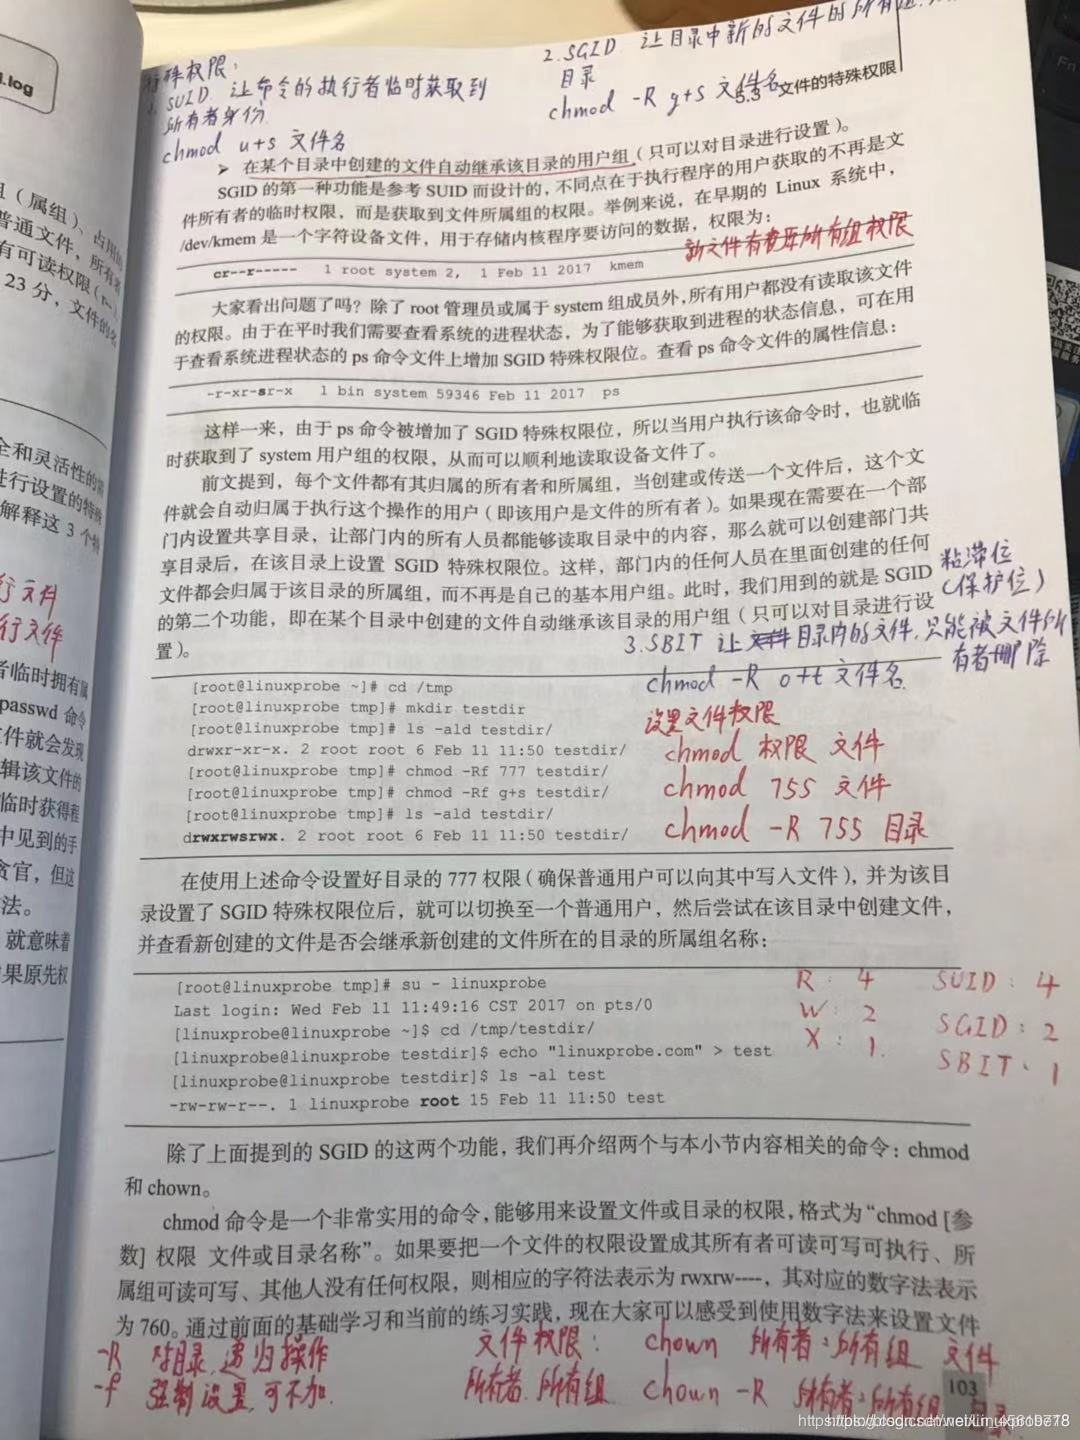 特殊权限：
1. SUID 让命令的执行者临时获取到
所有者身份
chmod u+s 文件名
2. SGID 让目录中新的文件的所有组
目录
chmod -R g+s 文件名
5.3 文件的特殊权限
➢ 在某个目录中创建的文件自动继承该目录的用户组（只可以对目录进行设置）。
SGID 的第一种功能是参考 SUID 而设计的，不同点在于执行程序的用户获取的不再是文
件所有者的临时权限，而是获取到文件所属组的权限。举例来说，在早期的 Linux 系统中，
/dev/kmem 是一个字符设备文件，用于存储内核程序要访问的数据，权限为：
cr--r----- 1 root system 2, 1 Feb 11 2017 kmem
大家看出问题了吗？除了 root 管理员或属于 system 组成员外，所有用户都没有读取该文件
的权限。由于在平时我们需要查看系统的进程状态，为了能够获取到进程的状态信息，可在用
于查看系统进程状态的 ps 命令文件上增加 SGID 特殊权限位。查看 ps 命令文件的属性信息：
-r-xr-sr-x 1 bin system 59346 Feb 11 2017 ps
这样一来，由于 ps 命令被增加了 SGID 特殊权限位，所以当用户执行该命令时，也就临
时获取到了 system 用户组的权限，从而可以顺利地读取设备文件了。
前文提到，每个文件都有其归属的所有者和所属组，当创建或传送一个文件后，这个文
件就会自动归属于执行这个操作的用户（即该用户是文件的所有者）。如果现在需要在一个部
门内设置共享目录，让部门内的所有人员都能够读取目录中的内容，那么就可以创建部门共
享目录后，在该目录上设置 SGID 特殊权限位。这样，部门内的任何人员在里面创建的任何
文件都会归属于该目录的所属组，而不再是自己的基本用户组。此时，我们用到的就是 SGID
的第二个功能，即在某个目录中创建的文件自动继承该目录的用户组（只可以对目录进行设
置）。
粘滞位
（保护位）
3. SBIT 让目录内的文件，只能被文件所
有者删除
chmod -R o+t 文件名
[root@linuxprobe ~]# cd /tmp
[root@linuxprobe tmp]# mkdir testdir
[root@linuxprobe tmp]# ls -ald testdir/
drwxr-xr-x. 2 root root 6 Feb 11 11:50 testdir/
[root@linuxprobe tmp]# chmod -Rf 777 testdir/
[root@linuxprobe tmp]# chmod -Rf g+s testdir/
[root@linuxprobe tmp]# ls -ald testdir/
drwxrwsrwx. 2 root root 6 Feb 11 11:50 testdir/
设置文件权限
chmod 权限 文件
chmod 755 文件
chmod -R 755 目录
在使用上述命令设置好目录的 777 权限（确保普通用户可以向其中写入文件），并为该目
录设置了 SGID 特殊权限位后，就可以切换至一个普通用户，然后尝试在该目录中创建文件，
并查看新创建的文件是否会继承新创建的文件所在的目录的所属组名称：
[root@linuxprobe tmp]# su - linuxprobe
Last login: Wed Feb 11 11:49:16 CST 2017 on pts/0
[linuxprobe@linuxprobe ~]$ cd /tmp/testdir/
[linuxprobe@linuxprobe testdir]$ echo "linuxprobe.com" > test
[linuxprobe@linuxprobe testdir]$ ls -al test
-rw-rw-r--. 1 linuxprobe root 15 Feb 11 11:50 test
R：4
W：2
X：1
SUID：4
SGID：2
SBIT：1
除了上面提到的 SGID 的这两个功能，我们再介绍两个与本小节内容相关的命令：chmod
和 chown。
chmod 命令是一个非常实用的命令，能够用来设置文件或目录的权限，格式为“chmod [参
数] 权限 文件或目录名称”。如果要把一个文件的权限设置成其所有者可读可写可执行、所
属组可读可写、其他人没有任何权限，则相应的字符法表示为 rwxrw----，其对应的数字法表示
为 760。通过前面的基础学习和当前的练习实践，现在大家可以感受到使用数字法来设置文件
-R 对目录，递归操作
-f 强制设置，可不加
文件权限： chown 所有者：所有组 文件
所有者，所有组 chown -R 所有者：所有组 目录
103